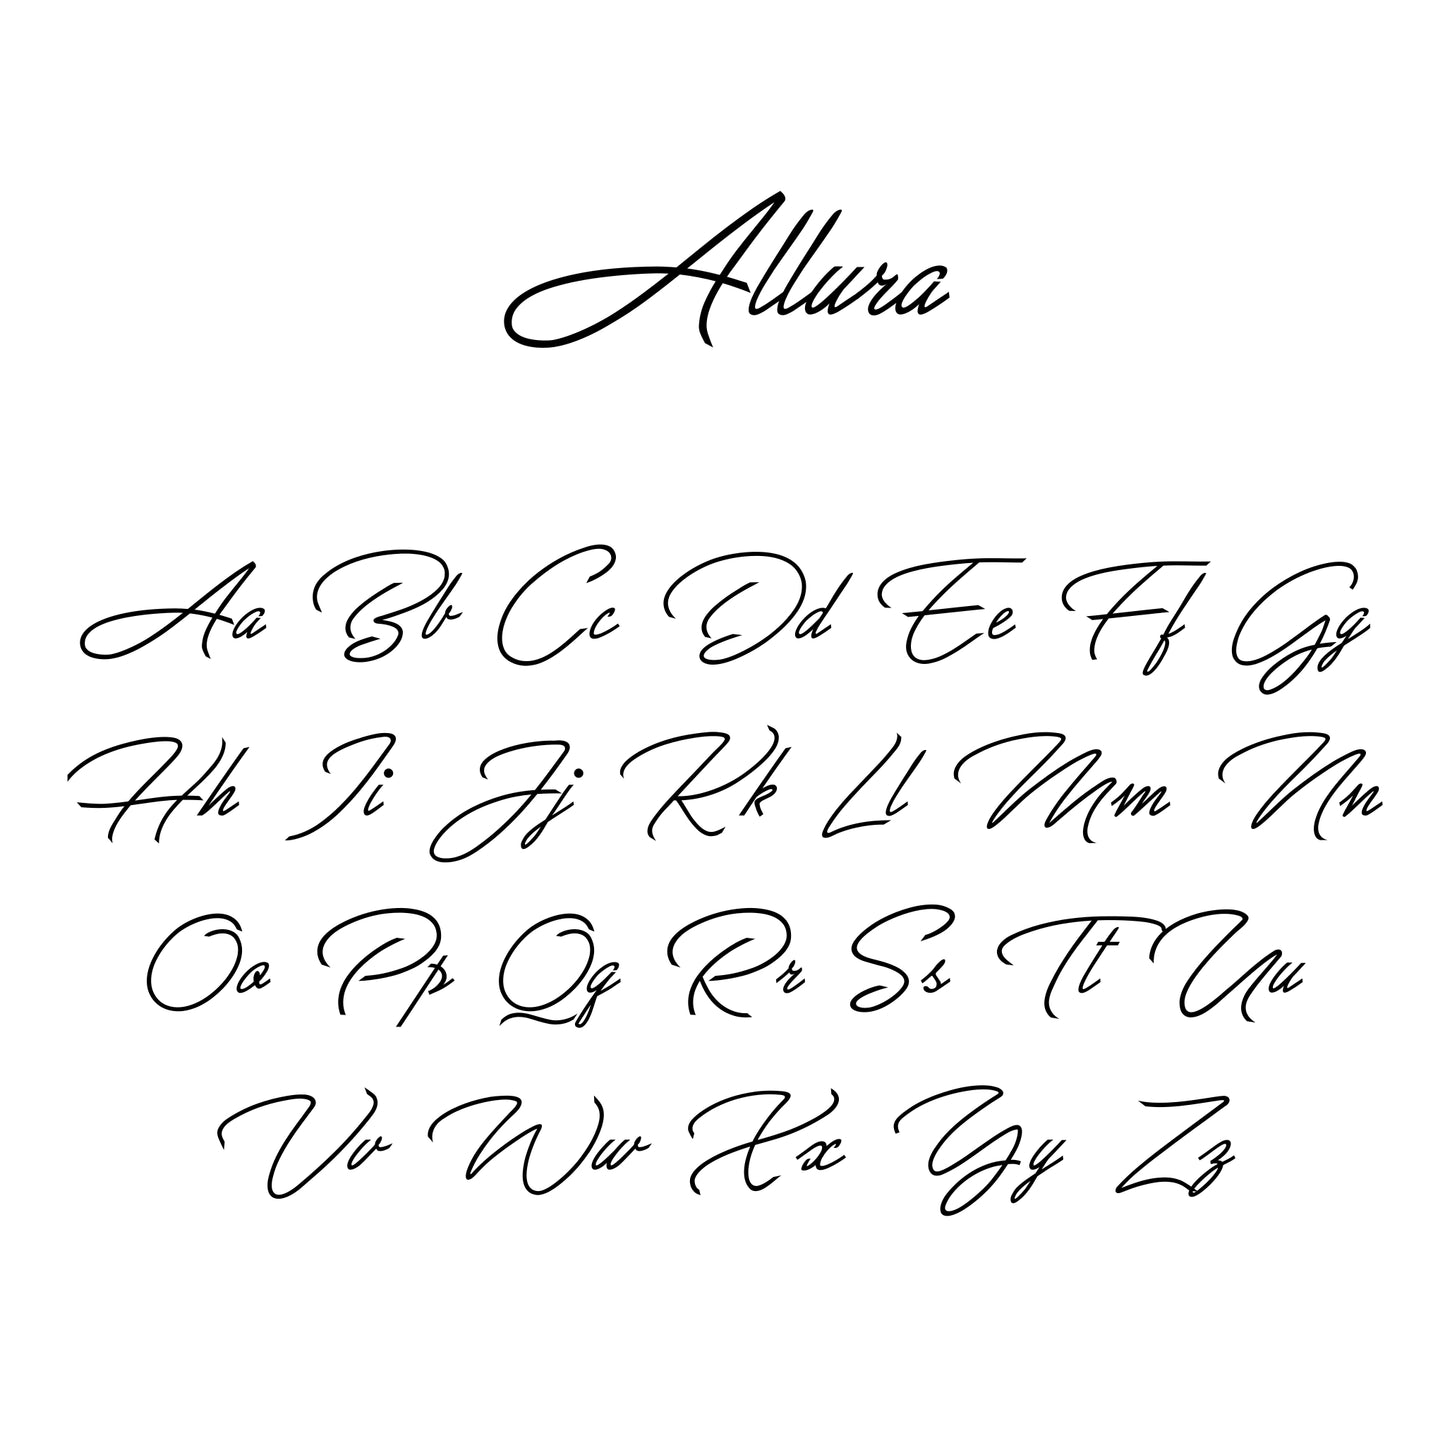 Allura
Aa Bb Cc Dd Ee Ff Gg
Hh Ii Jj Kk Ll Mm Nn
Oo Pp Qq Rr Ss Tt Uu
Vv Ww Xx Yy Zz